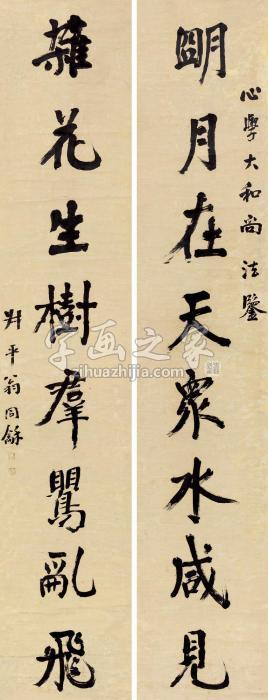 心學大和尚法鑒
朙月在天眾水咸見
雜花生樹羣鸎亂飛
叔平翁同龢
字画之家
zihuazhijia.com
字画之家
zihuazhijia.com